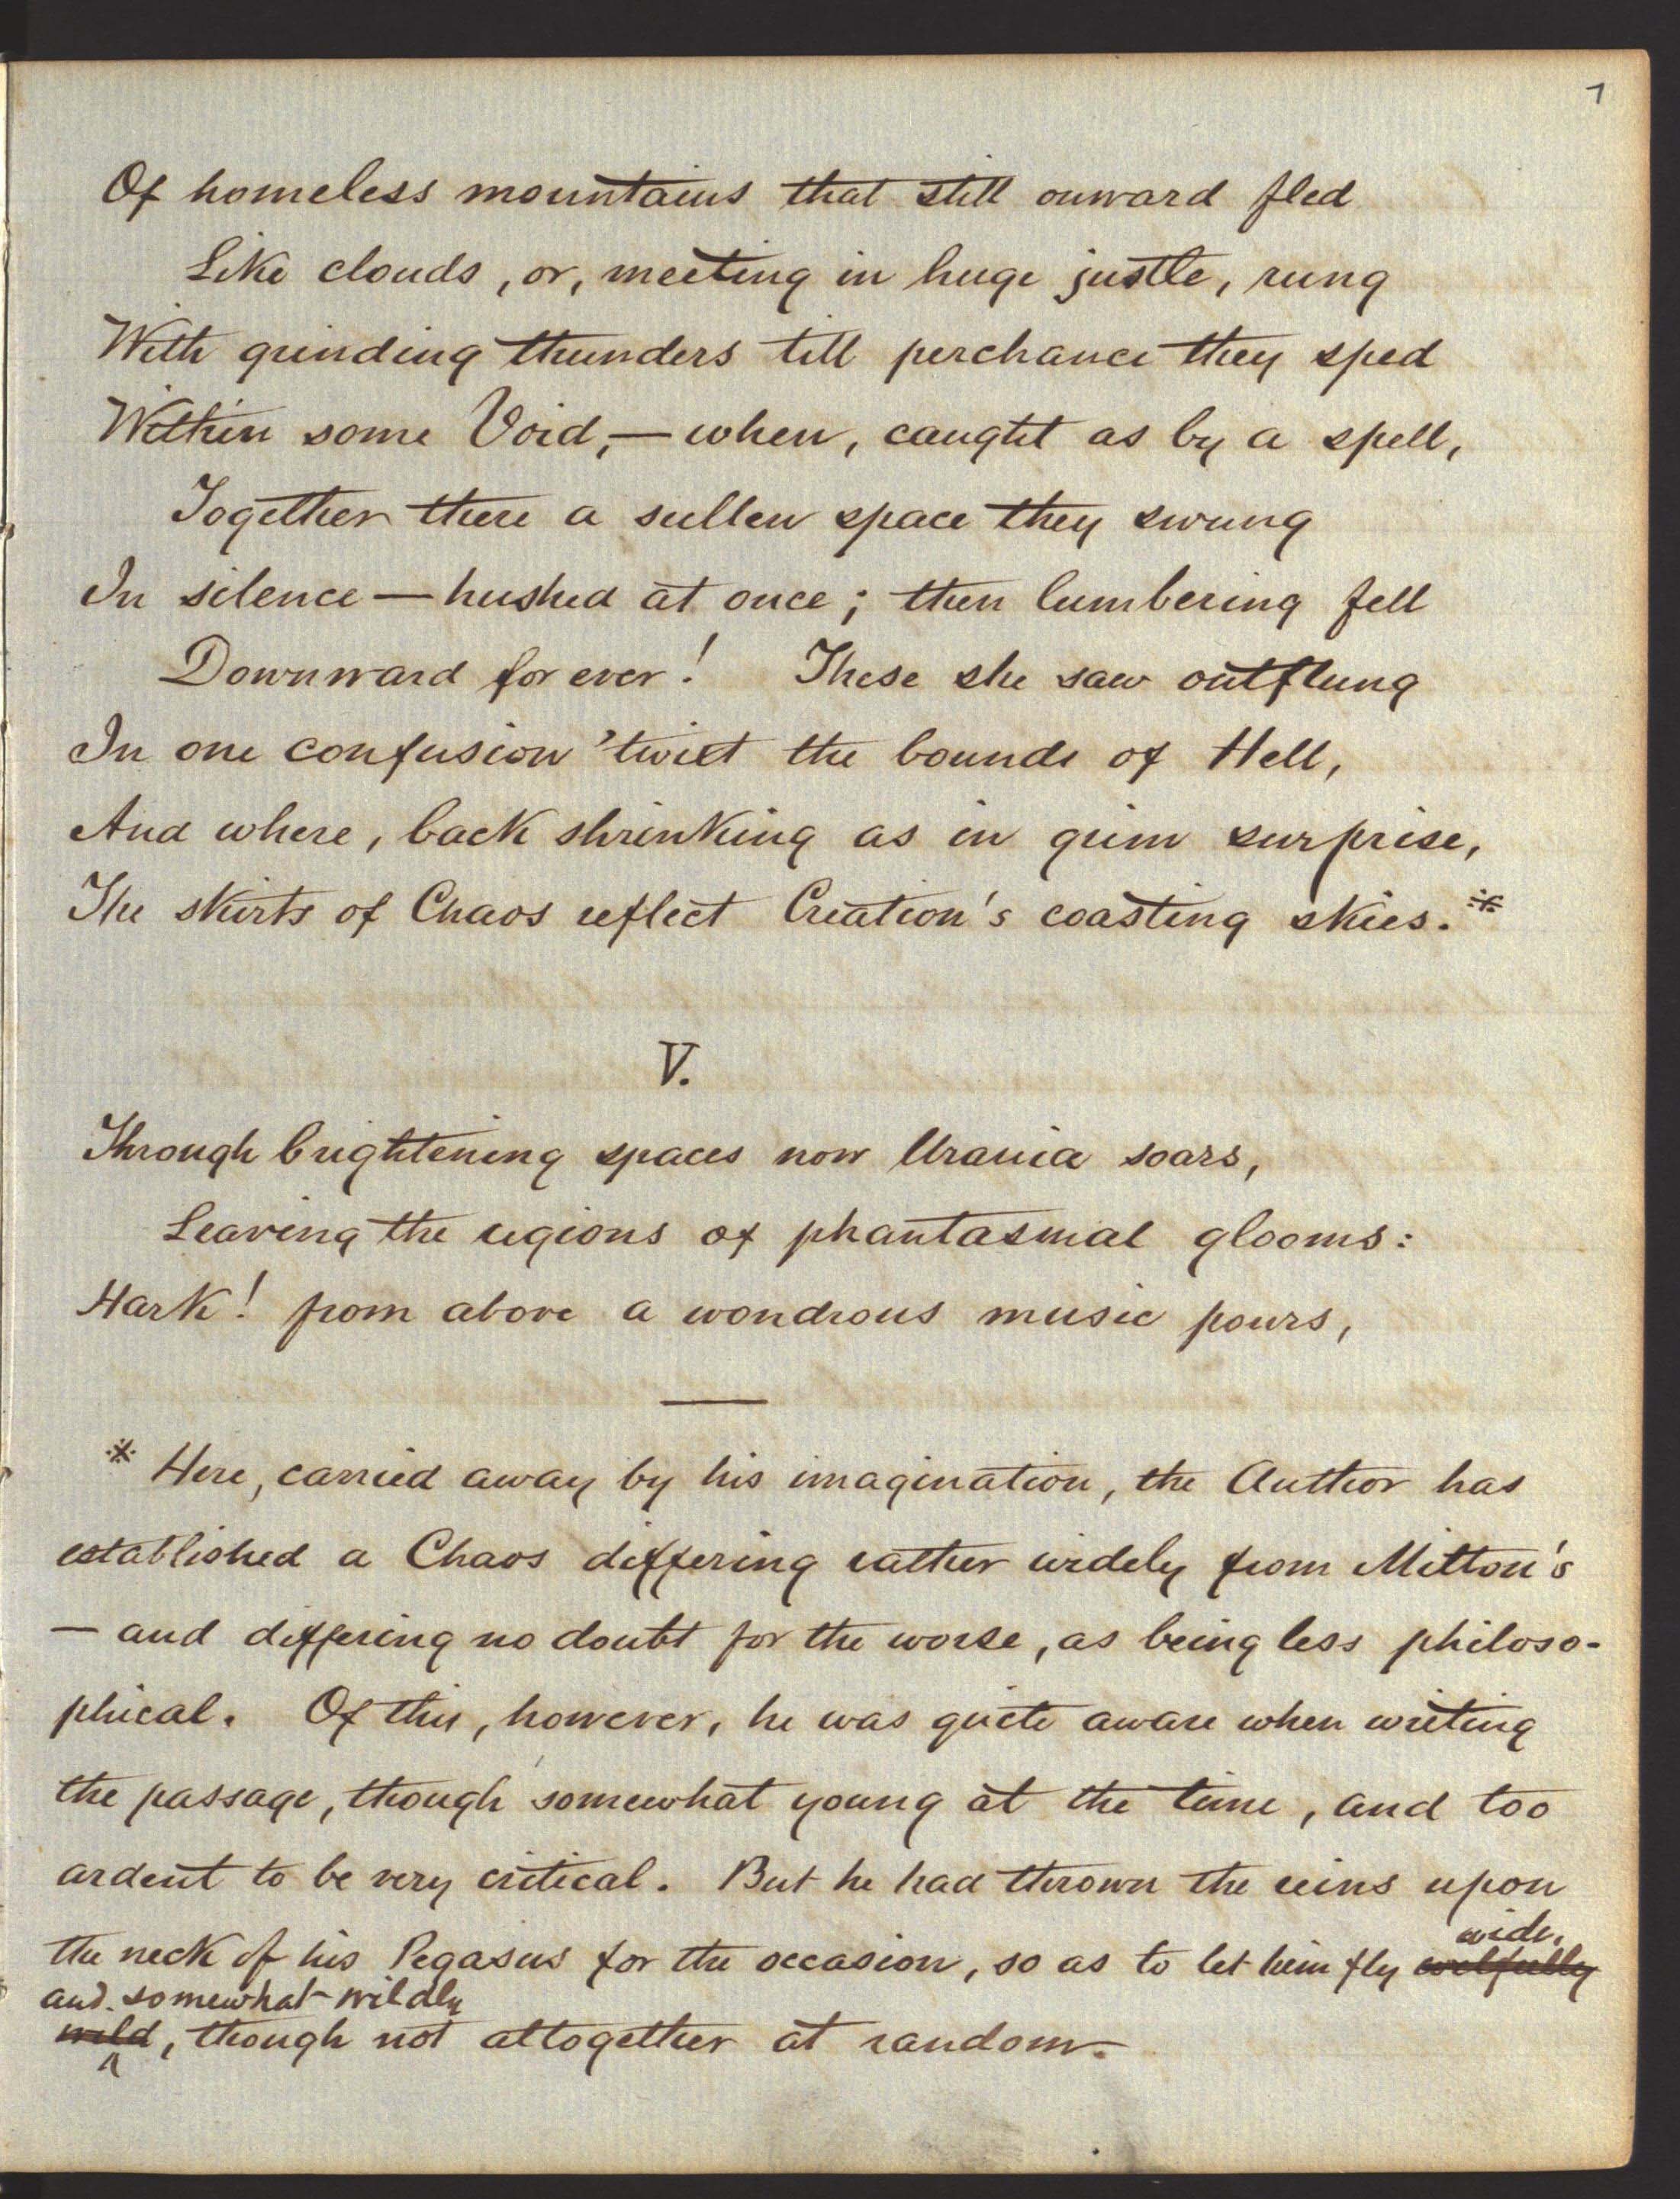 7
Of homeless mountains that still onward fled
Like clouds, or, meeting in huge justle, rung
With grinding thunders till perchance they sped
Within some Void,—when, caught as by a spell,
Together there a sullen space they swung
In silence—hushed at once; then lumbering fell
Downward for ever! These she saw outflung
In one confusion 'twixt the bounds of Hell,
And where, back shrinking as in grim surprise,
The skirts of Chaos reflect Creation's coasting skies.*
V.
Through brightening spaces now Urania soars,
Leaving the regions of phantasmal glooms:
Hark! from above a wondrous music pours,
* Here, carried away by his imagination, the Author has
established a Chaos differing rather widely from Milton's
— and differing no doubt for the worse, as being less philoso-
phical. Of this, however, he was quite aware when writing
the passage, though somewhat young at the time, and too
ardent to be very critical. But he had thrown the reins upon
wide,
the neck of his Pegasus for the occasion, so as to let him fly wilfully
and somewhat wildly
wild, though not altogether at random.